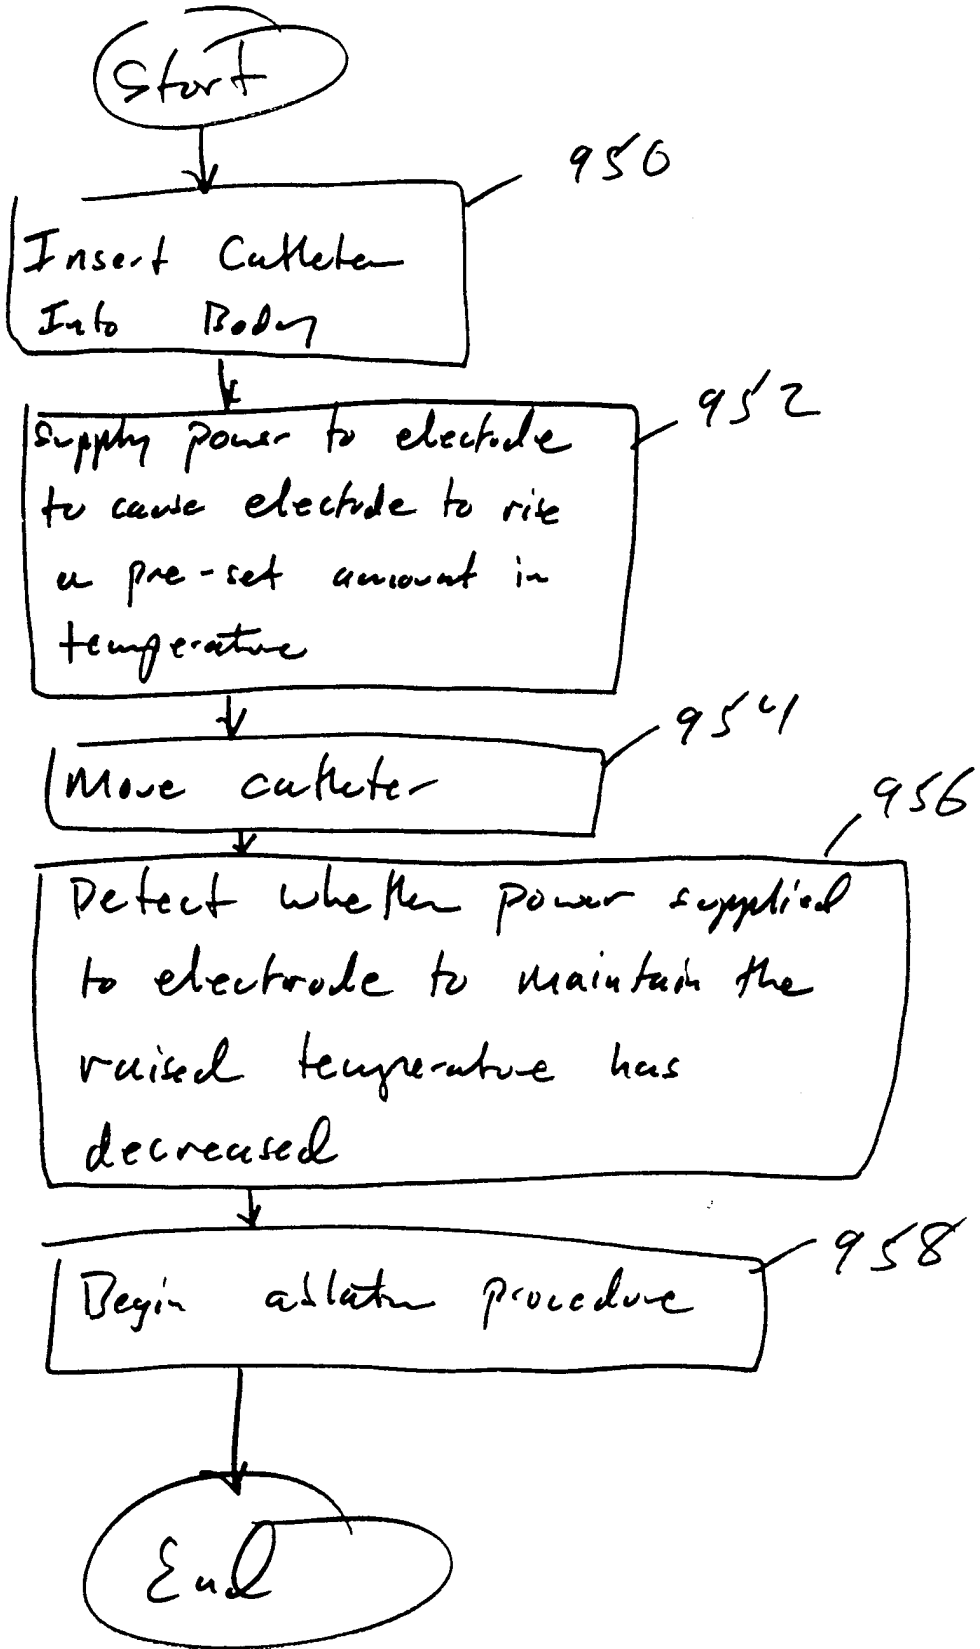 Start
950
Insert Catheter
Into Body
952
supply power to electrode
to cause electrode to rise
a pre-set amount in
temperature
954
Move catheter
956
Detect whether power supplied
to electrode to maintain the
raised temperature has
decreased
958
Begin ablation procedure
End